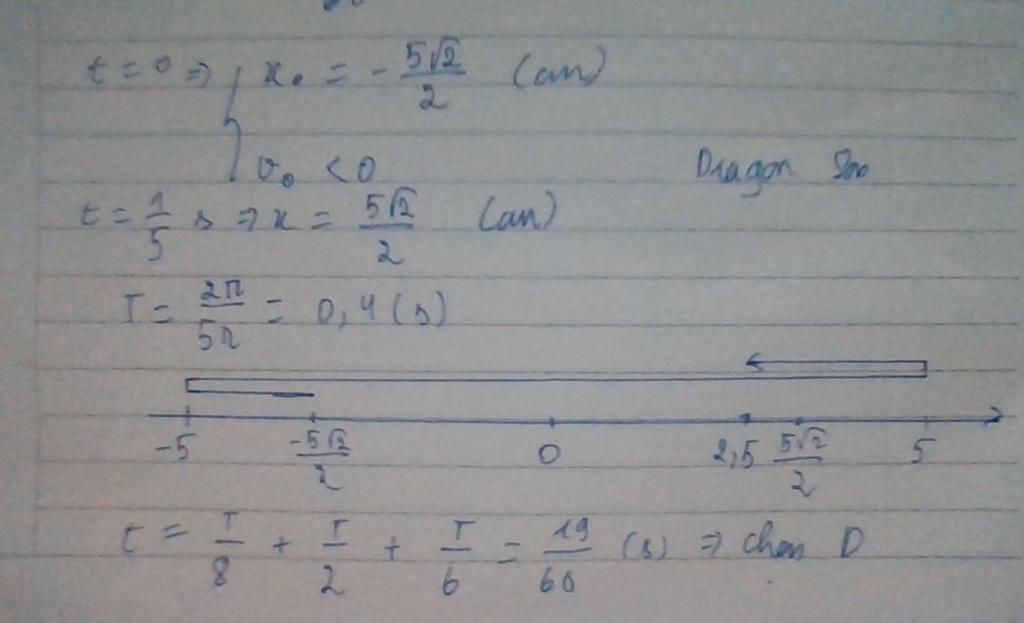 t = 0 => { x₀ = - 5√2/2 (cm)
v₀ < 0
Dragon
t = 1/5 s => x = 5√2/2 (cm)
T = 2π/5π = 0,4 (s)
-5 -5√2/2 0 2,5 5√2/2 5
t = T/8 + T/2 + T/6 = 19/60 (s) => chọn D